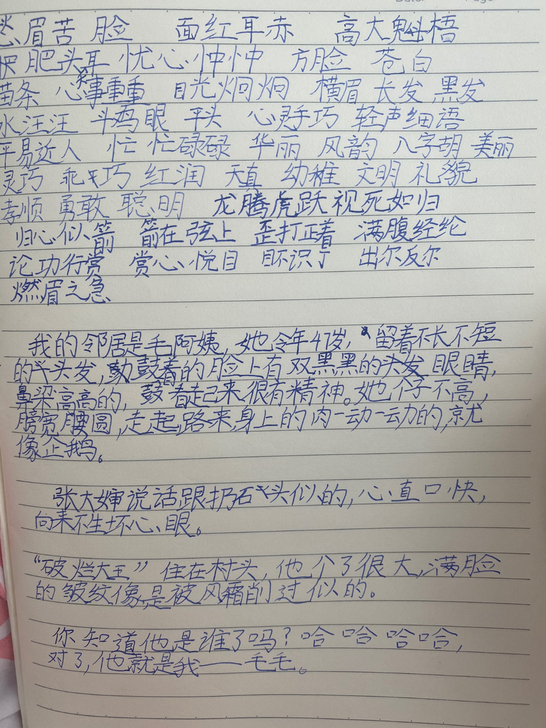 愁眉苦脸 面红耳赤 高大魁梧
肥头大耳 忧心忡忡 方脸 苍白
苗条 心事重重 目光炯炯 横眉 长发 黑发
水汪汪 斗鸡眼 平头 心灵手巧 轻声细语
平易近人 忙忙碌碌 华丽 风韵 八字胡 美丽
灵巧 乖巧 红润 天真 幼稚 文明 礼貌
孝顺 勇敢 聪明 龙腾虎跃 视死如归
归心似箭 箭在弦上 歪打正着 满腹经纶
论功行赏 赏心悦目 目不识丁 出尔反尔
燃眉之急
我的邻居是毛阿姨,她今年47岁,留着不长不短
的头发,鼓着的脸上有双黑黑的头发眼睛,
鼻梁高高的,鼓着起来很有精神。她个子不高,
膀宽腰圆,走起路来身上的肉一动一动的,就
像企鹅。
张大婶说话跟扔石头似的,心直口快,
向来不生坏心眼。
“破烂大王”住在村头,他个子很大,满脸
的皱纹像是被风霜削过似的。
你知道他是谁了吗?哈哈哈哈,
对了,他就是我——毛毛。